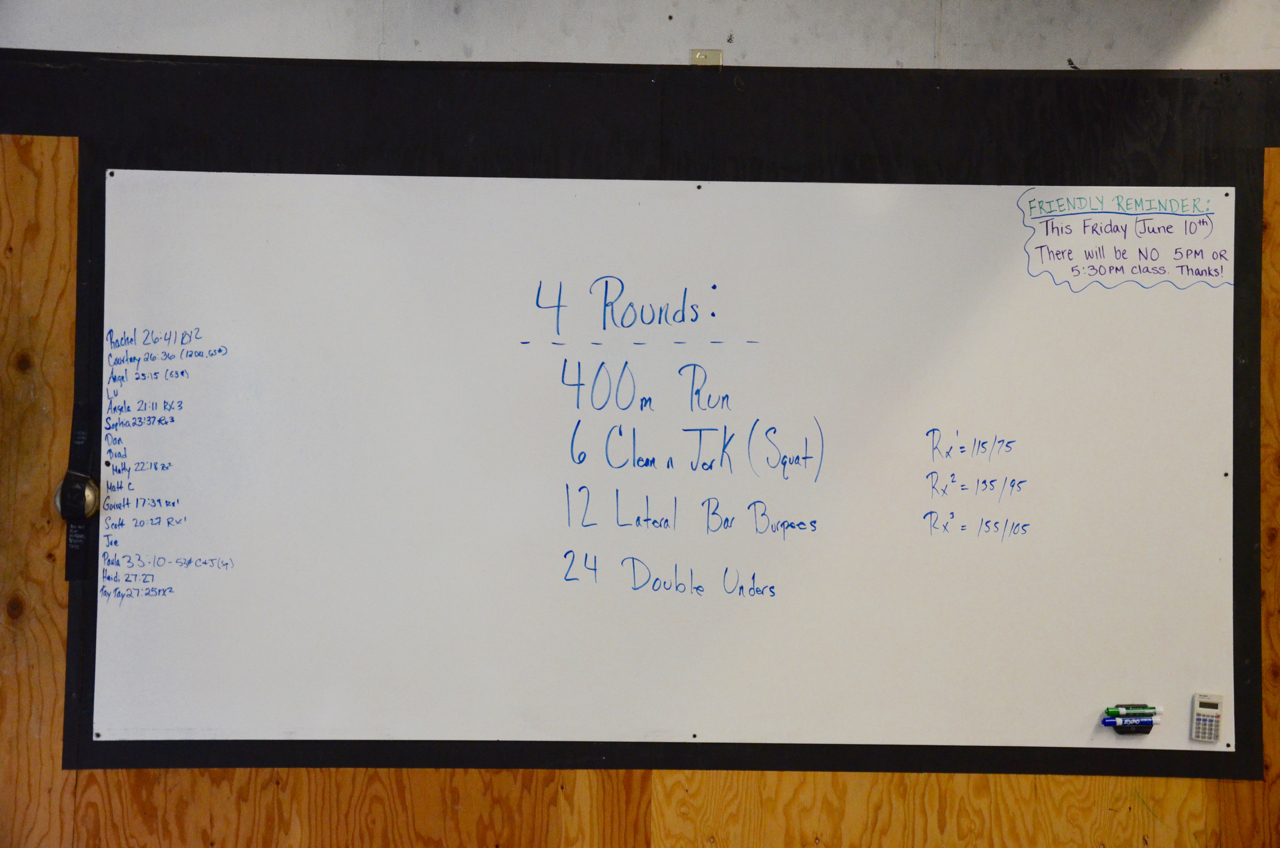 FRIENDLY REMINDER:
This Friday (June 10th)
There will be NO 5PM OR
5:30PM class. Thanks!
4 Rounds:
400m Run
6 Clean n Jerk (Squat)
12 Lateral Bar Burpees
24 Double Unders
Rx1 = 115/75
Rx2 = 135/95
Rx3 = 155/105
Rachel 26:41 RX2
Courtney 26:36
Angel 25:15 (63#)
LU
Angela 21:11 RX3
Sophia 23:37 RX3
Dan
Brad
Matty 22:18 Rx2
Matt C
Garrett 17:39 RX1
Scott 20:27 RX1
Joe
Paula 33:10 - 53# C+J
Heidi 27:27
Tay Tay 27:25 RX2
EXPO